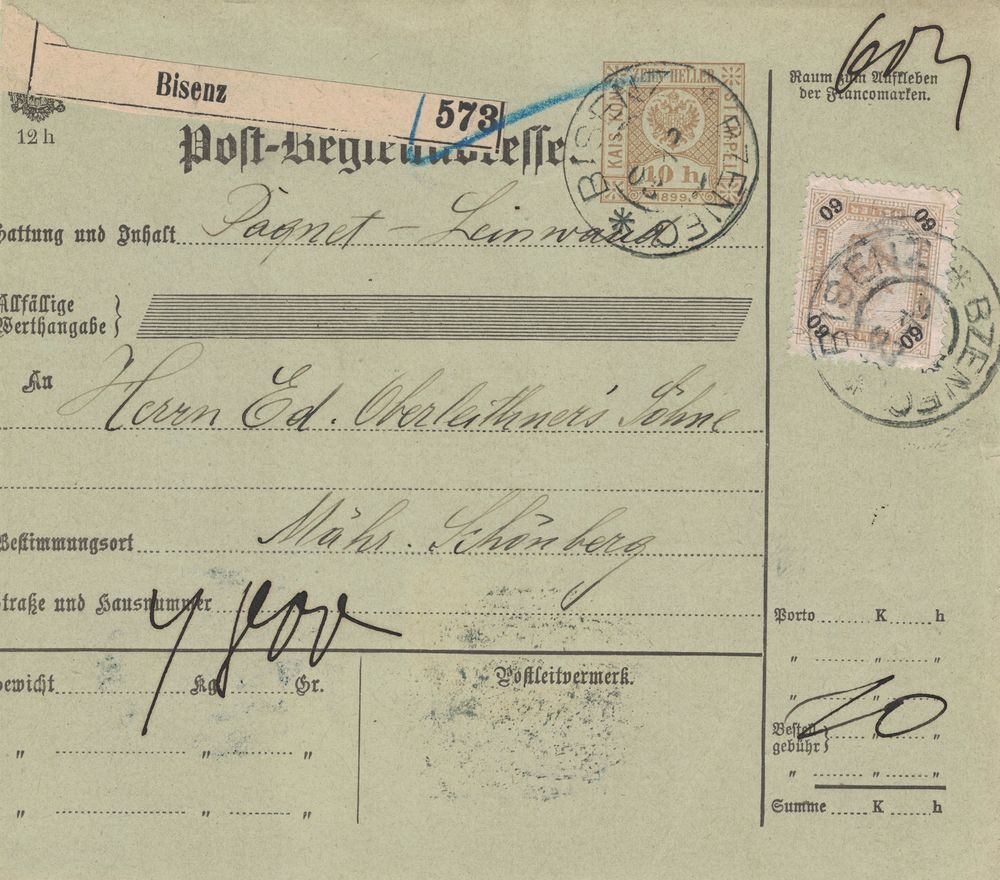 Bisenz
573
12 h
Post-Begleitadresse
ZEHN HELLER
KAIS. KÖN.
STEMPEL
10 h
1899.
BISENZ * BZENEC *
Raum zum Aufkleben
der Francomarken.
60
60 60
60 60
BISENZ * BZENEC *
Gattung und Inhalt Paquet - Leinwand
Allfällige
Werthangabe
An Herrn Ed. Oberleithner's Söhne
Bestimmungsort Mähr. Schönberg
Straße und Hausnummer
Gewicht Kg. Gr.
" " "
" " "
Postleitvermerk.
Porto K h
" " "
" " "
10
Bestell
gebühr " "
" " "
Summe K h